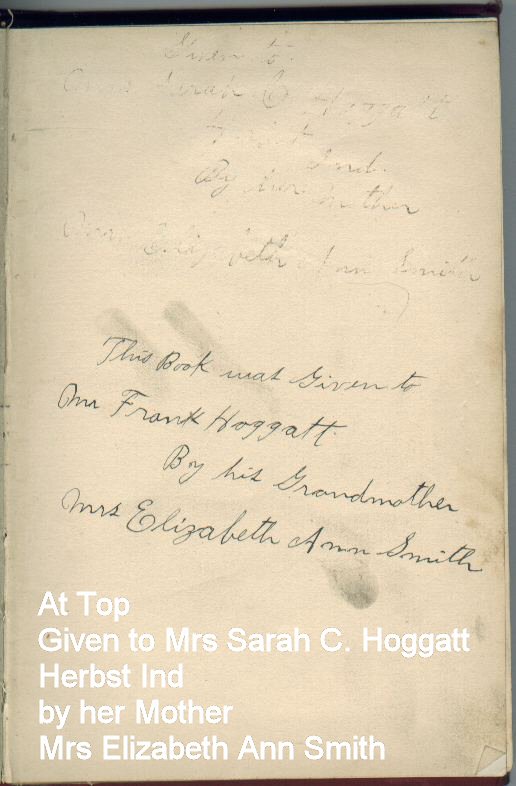 Given to
Mrs Sarah C Hoggatt
Ind.
By her Mother
Mrs Elizabeth Ann Smith
This Book was Given to
Mr Frank Hoggatt
By his Grandmother
Mrs Elizabeth Ann Smith
At Top
Given to Mrs Sarah C. Hoggatt
Herbst Ind
by her Mother
Mrs Elizabeth Ann Smith